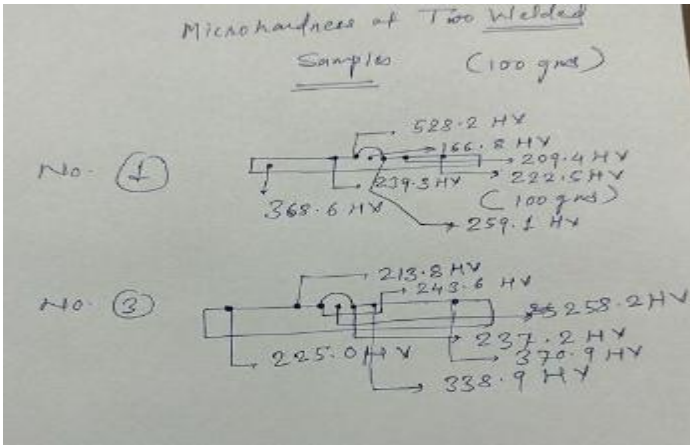 Microhardness of Two Welded
Samples (100 gms)
No. 1
528.2 HV
166.8 HV
209.4 HV
239.3 HV
222.5 HV
(100 gms)
368.6 HV
259.1 HV
No. 3
213.8 HV
243.6 HV
258.2 HV
237.2 HV
225.0 HV
370.9 HV
338.9 HV